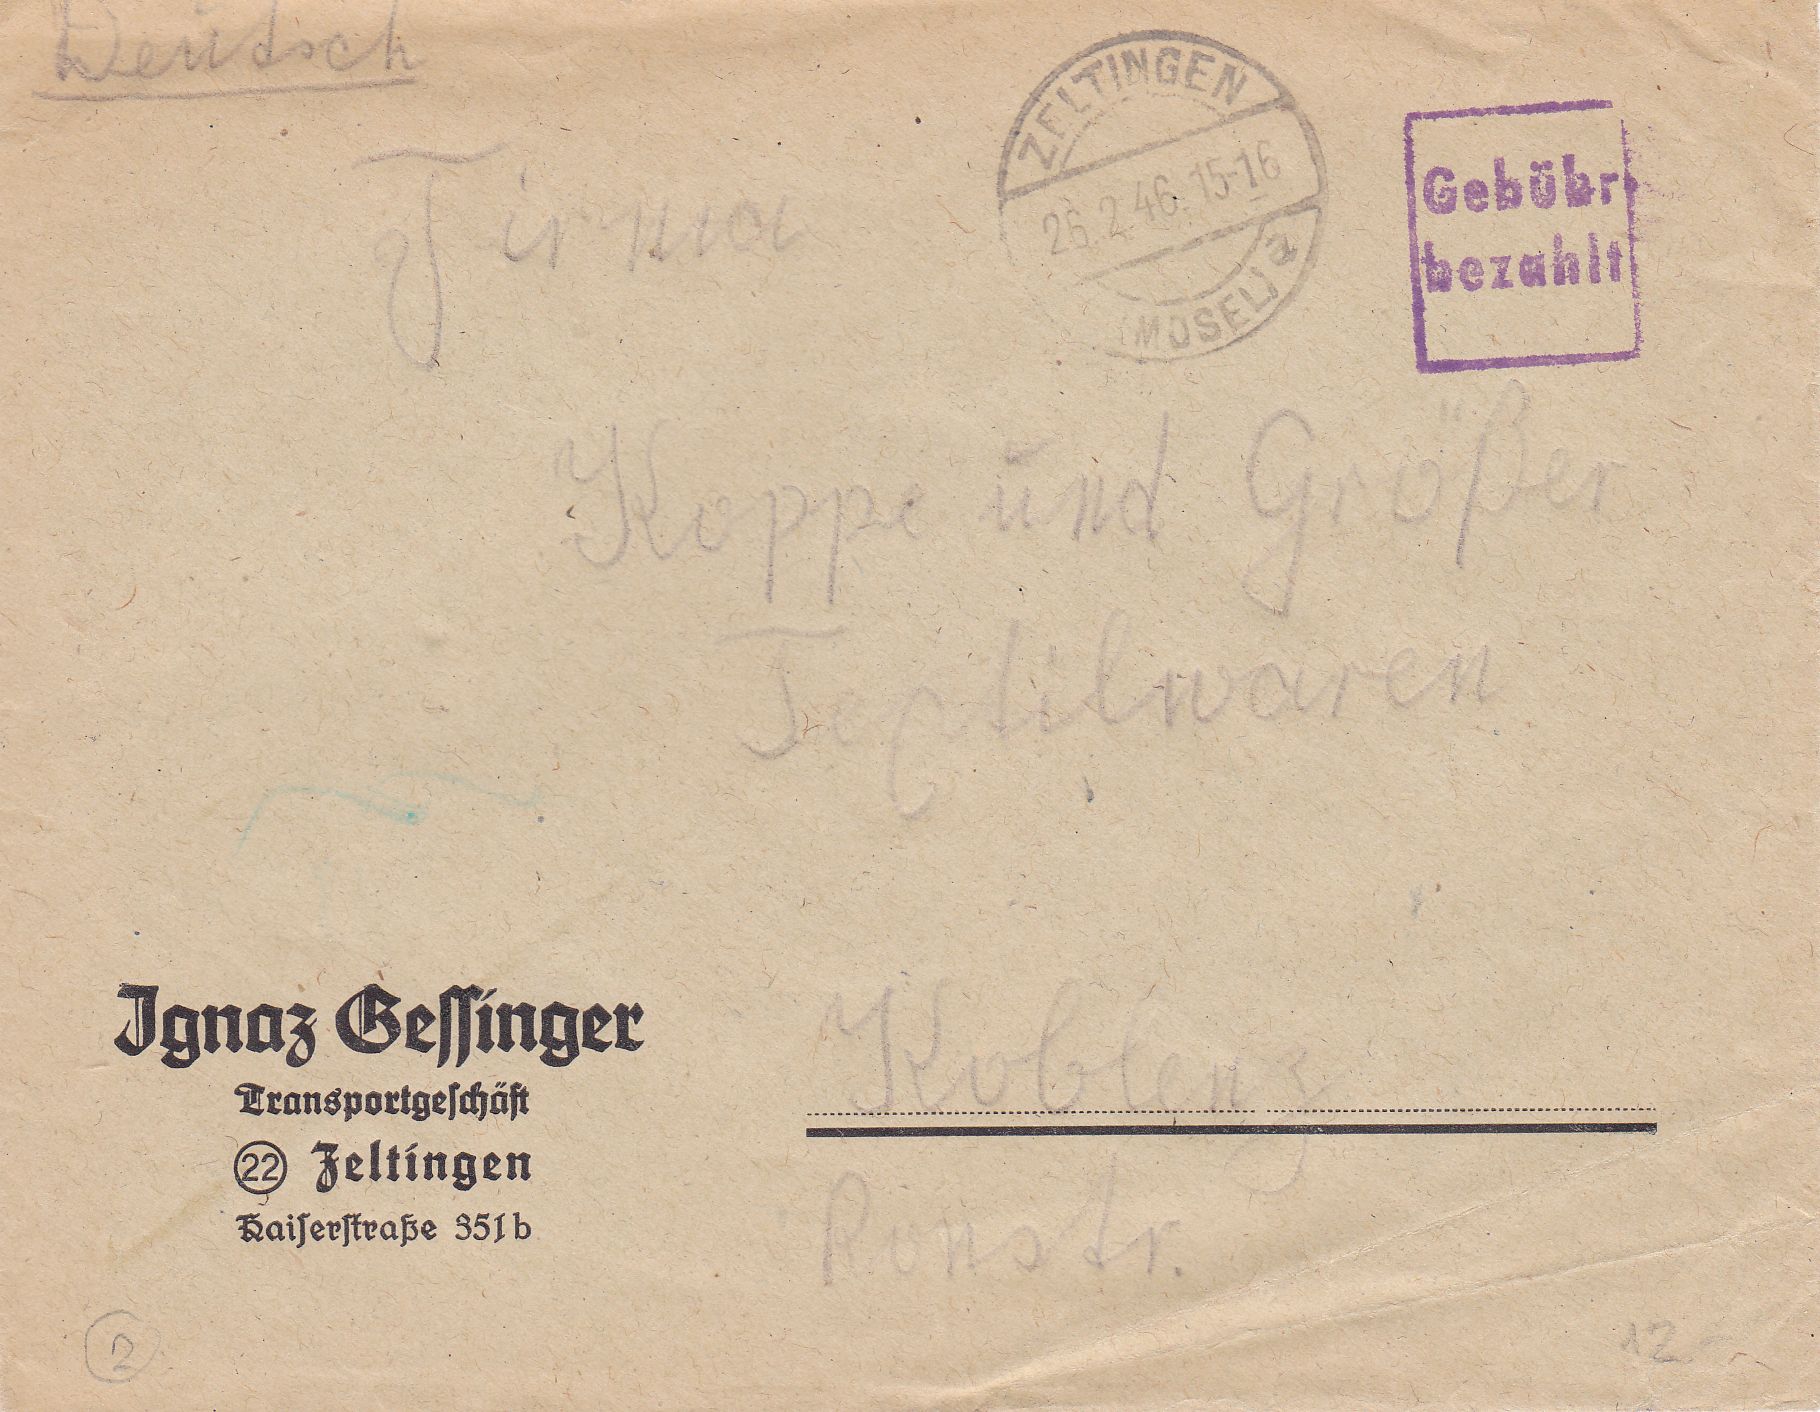 Deutsch
ZELTINGEN
26.2.46.15-16
(MOSEL) a
Gebühr
bezahlt
Firma
Koppe und Größer
Textilwaren
Koblenz
Ronstr.
Ignaz Gessinger
Transportgeschäft
22 Zeltingen
Kaiserstraße 351b
2
12.-